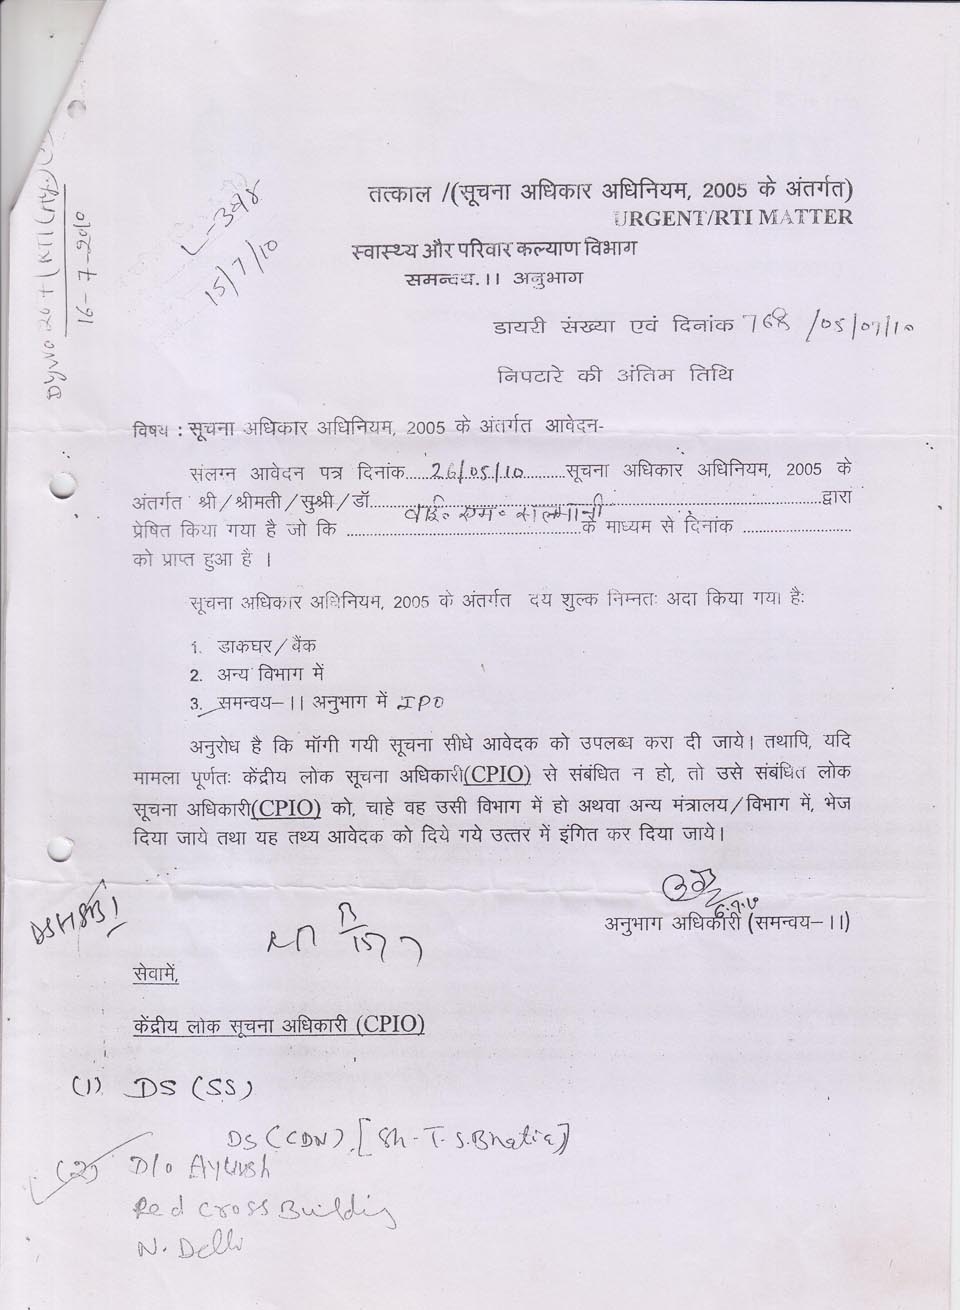 L-398
15/7/10
16-7-2010
तत्काल /(सूचना अधिकार अधिनियम, 2005 के अंतर्गत)
URGENT/RTI MATTER
स्वास्थ्य और परिवार कल्याण विभाग
समन्वय.।। अनुभाग
डायरी संख्या एवं दिनांक 768 /05/07/10
निपटारे की अंतिम तिथि
विषय : सूचना अधिकार अधिनियम, 2005 के अंतर्गत आवेदन-
संलग्न आवेदन पत्र दिनांक....26/05/10............सूचना अधिकार अधिनियम, 2005 के
अंतर्गत श्री/श्रीमती/सुश्री/डॉ.....वाई. एम. सलमानी.....द्वारा
प्रेषित किया गया है जो कि ..........के माध्यम से दिनांक ..........
को प्राप्त हुआ है ।
सूचना अधिकार अधिनियम, 2005 के अंतर्गत दय शुल्क निम्नतः अदा किया गया हैः
1. डाकघर/बैंक
2. अन्य विभाग में
3. समन्वय-।। अनुभाग में IPO
अनुरोध है कि मॉगी गयी सूचना सीधे आवेदक को उपलब्ध करा दी जाये। तथापि, यदि
मामला पूर्णतः केंद्रीय लोक सूचना अधिकारी(CPIO) से संबंधित न हो, तो उसे संबंधित लोक
सूचना अधिकारी(CPIO) को, चाहे वह उसी विभाग में हो अथवा अन्य मंत्रालय/विभाग में, भेज
दिया जाये तथा यह तथ्य आवेदक को दिये गये उत्तर में इंगित कर दिया जाये।
अनुभाग अधिकारी (समन्वय-।।)
सेवामें,
केंद्रीय लोक सूचना अधिकारी (CPIO)
(1) DS (SS)
DS (CDN) [Sh. T. S. Bhatia]
(2) D/o AYUSH
Red Cross Building
N. Delhi